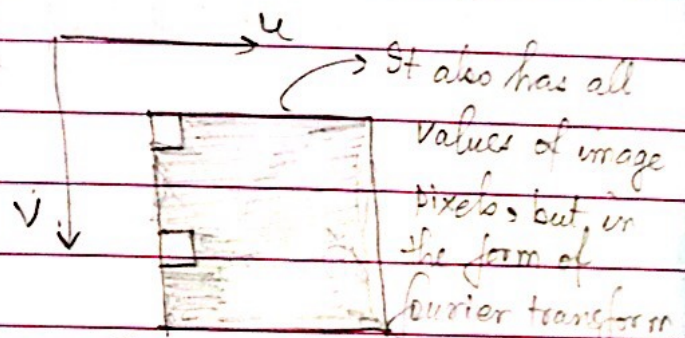 u
It also has all
values of image
pixels, but in
v
the form of
fourier transform